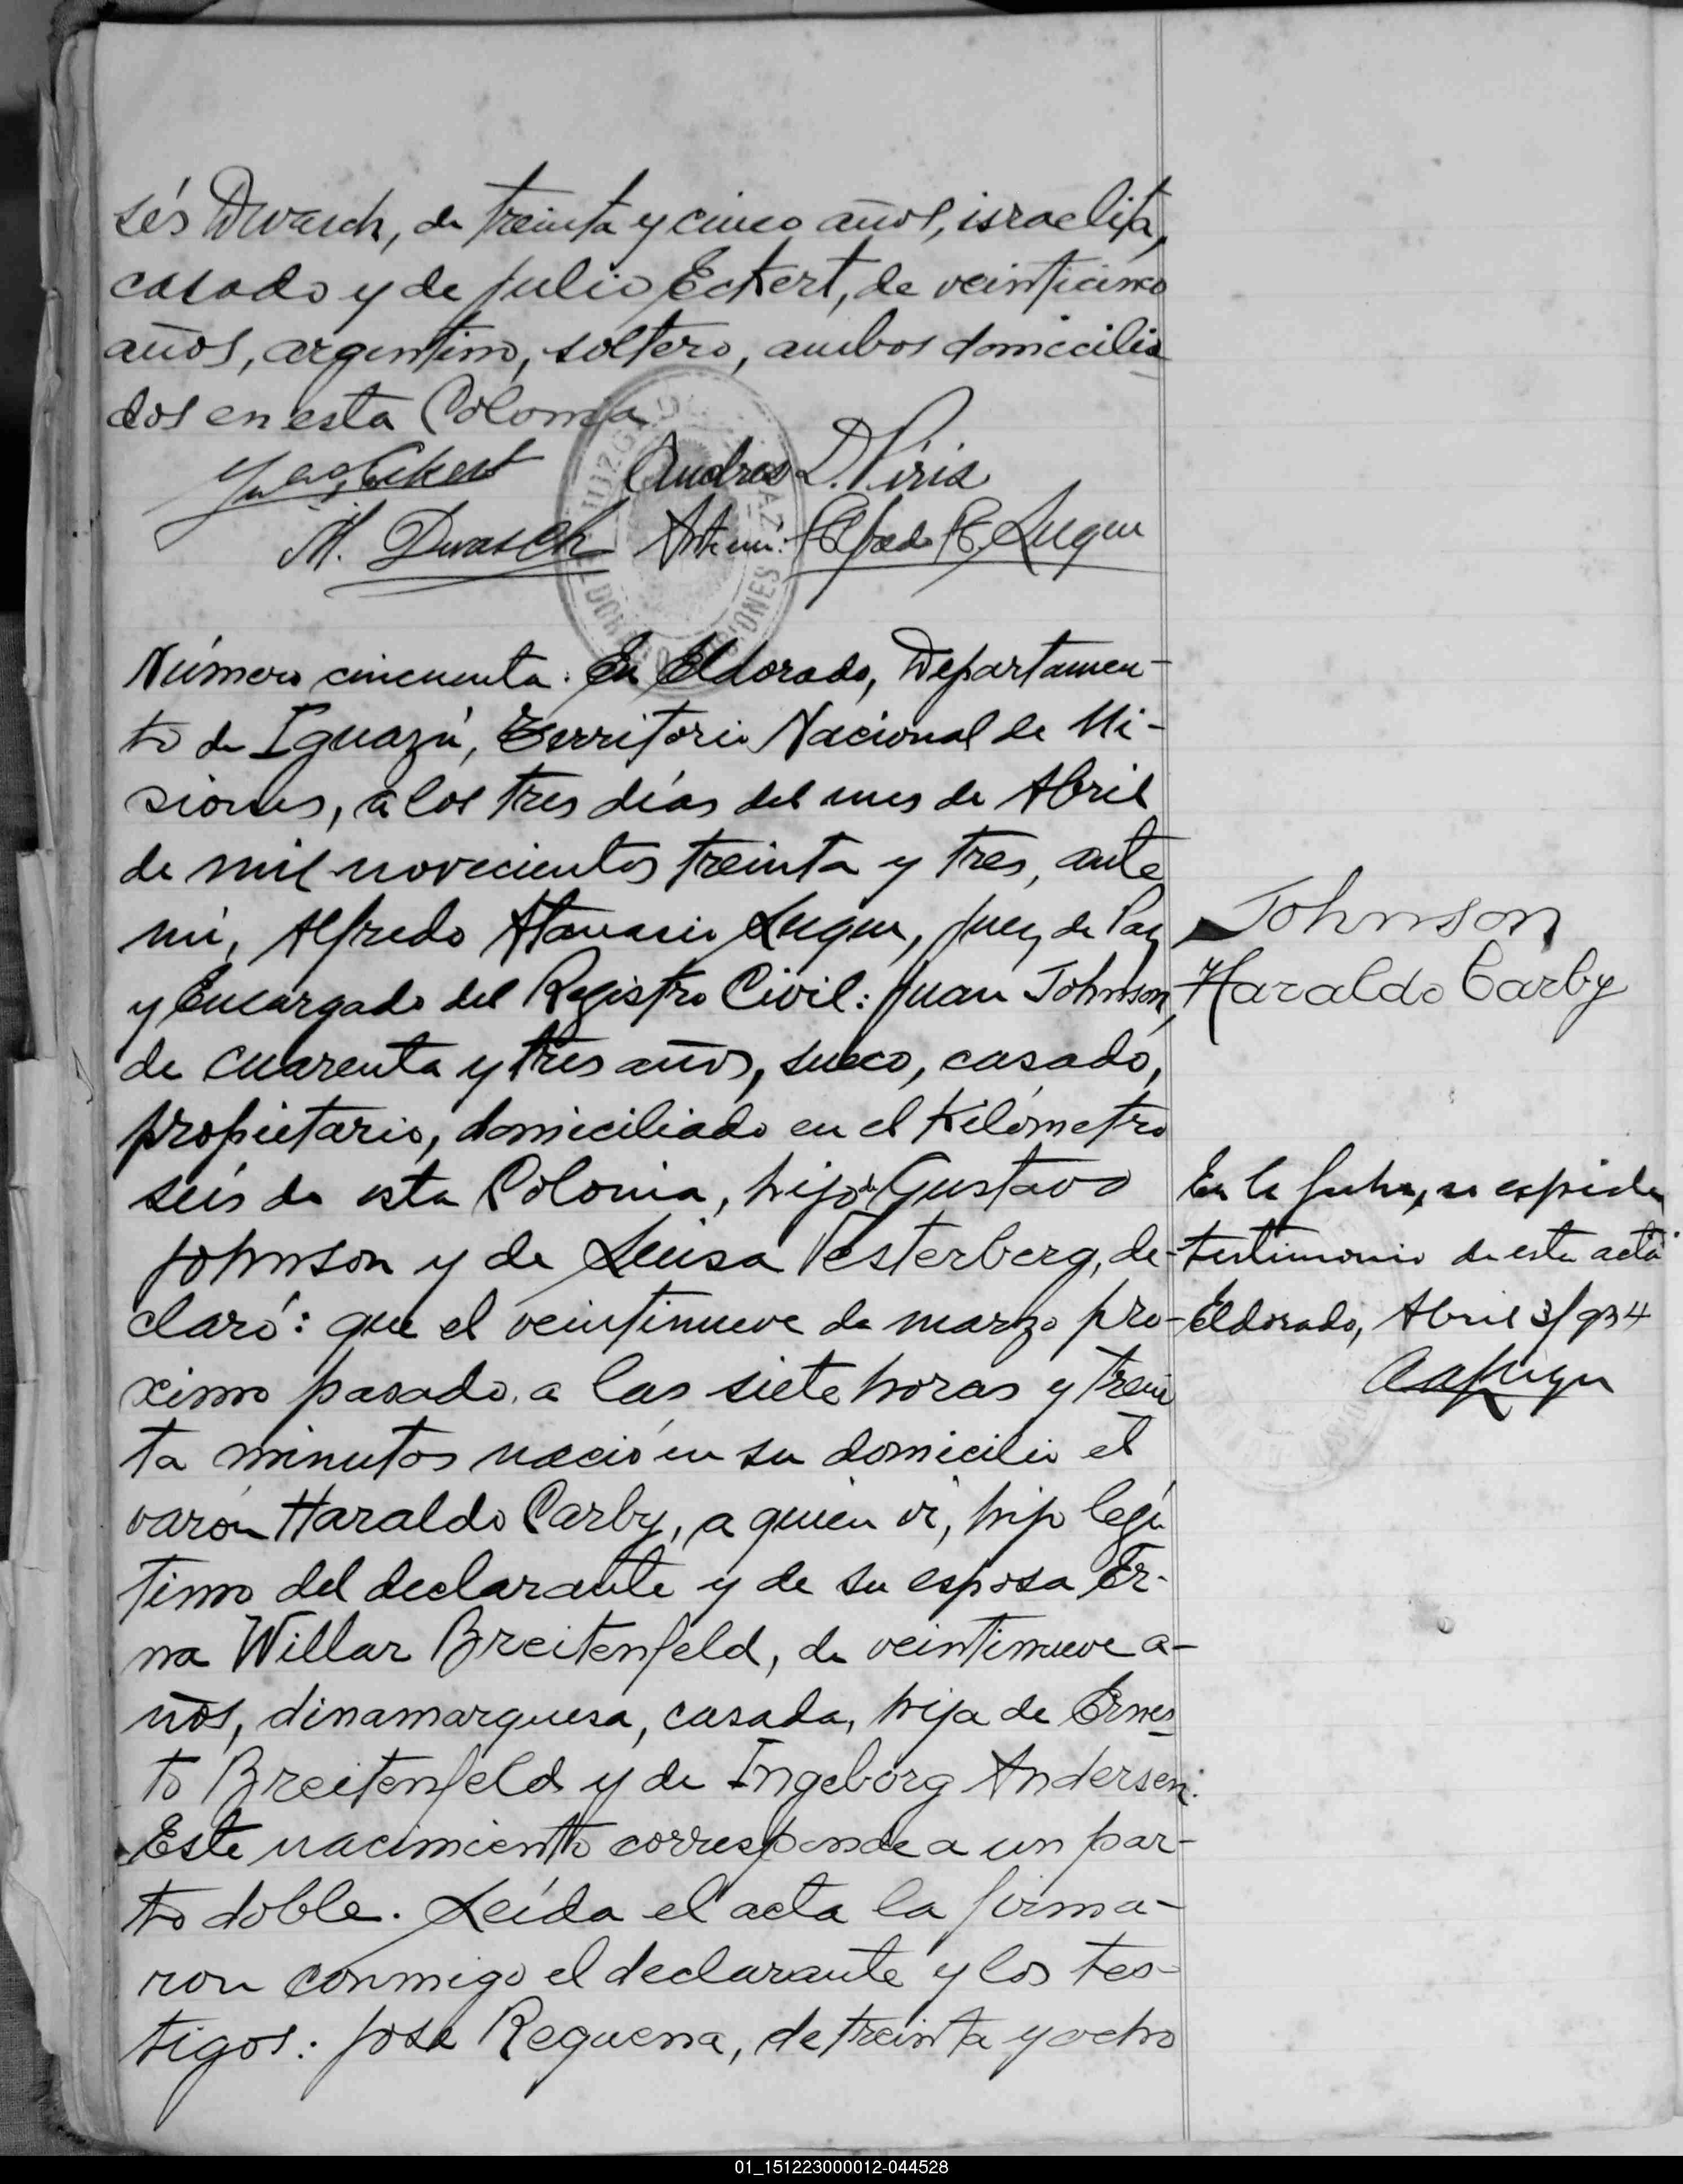 sés Dwasch, de treinta y cinco años, israelita,
casado y de Julio Eckert, de veinticinco
años, argentino, soltero, ambos domicilia
dos en esta Colonia
Eckert Andres D. Piris
M. Dwasch Ante mi: Alfredo A. Luque
Número cincuenta: En Eldorado, Departamen-
to de Iguazú, Territorio Nacional de Mi-
siones, a los tres días del mes de Abril
de mil novecientos treinta y tres, ante
mi, Alfredo Atanasio Luque, Juez de Paz
y Encargado del Registro Civil: Juan Johnson,
de cuarenta y tres años, sueco, casado,
propietario, domiciliado en el Kilómetro
seis de esta Colonia, hijo de Gustavo
Johnson y de Luisa Vesterberg, de-
claró: que el veintinueve de marzo pró-
ximo pasado, a las siete horas y trein
ta minutos nació en su domicilio el
varón Haraldo Carby, a quien vi, hijo legí
timo del declarante y de su esposa Er-
na Willar Breitenfeld, de veintinueve a-
ños, dinamarquesa, casada, hija de Ernes
to Breitenfeld y de Ingeborg Andersen.
Este nacimiento corresponde a un par-
to doble. Leída el acta la firma-
ron conmigo el declarante y los tes-
tigos: José Requena, de treinta y ocho
Johnson
Haraldo Carby
En la fecha, se expide
testimonio de esta acta
Eldorado, Abril 3/934
AALuque
01_151223000012-044528